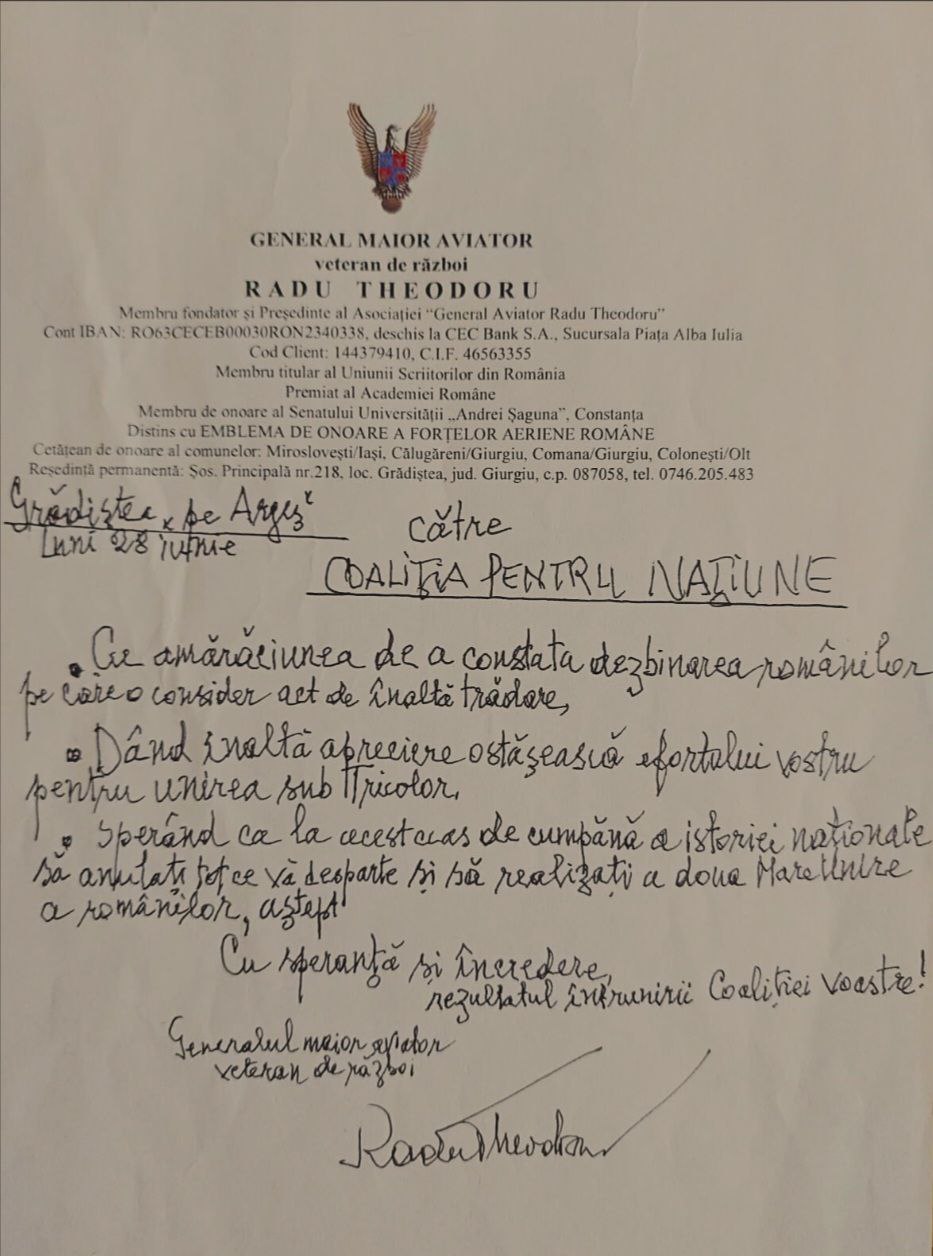 GENERAL MAIOR AVIATOR
veteran de război
RADU THEODORU
Membru fondator și Președinte al Asociației "General Aviator Radu Theodoru"
Cont IBAN: RO63CECEB00030RON2340338, deschis la CEC Bank S.A., Sucursala Piața Alba Iulia
Cod Client: 144379410, C.I.F. 46563355
Membru titular al Uniunii Scriitorilor din România
Premiat al Academiei Române
Membru de onoare al Senatului Universității „Andrei Șaguna", Constanța
Distins cu EMBLEMA DE ONOARE A FORȚELOR AERIENE ROMÂNE
Cetățean de onoare al comunelor: Miroslovești/Iași, Călugăreni/Giurgiu, Comana/Giurgiu, Colonești/Olt
Reședință permanentă: Șos. Principală nr.218, loc. Grădiștea, jud. Giurgiu, c.p. 087058, tel. 0746.205.483
Grădiștea pe Argeș
Luni 28 iunie
către
COALIȚIA PENTRU NAȚIUNE
• Cu amărăciunea de a constata dezbinarea românilor
pe care o consider act de înaltă trădare,
• Dând înaltă apreciere ostășească efortului vostru
pentru unirea sub Tricolor,
• Sperând ca la acest ceas de cumpănă a istoriei naționale
să anulați tot ce vă desparte și să realizați a doua Mare Unire
a românilor, aștept
Cu speranță și încredere,
rezultatul întrunirii Coaliției voastre!
Generalul maior aviator
veteran de război
Radu Theodoru